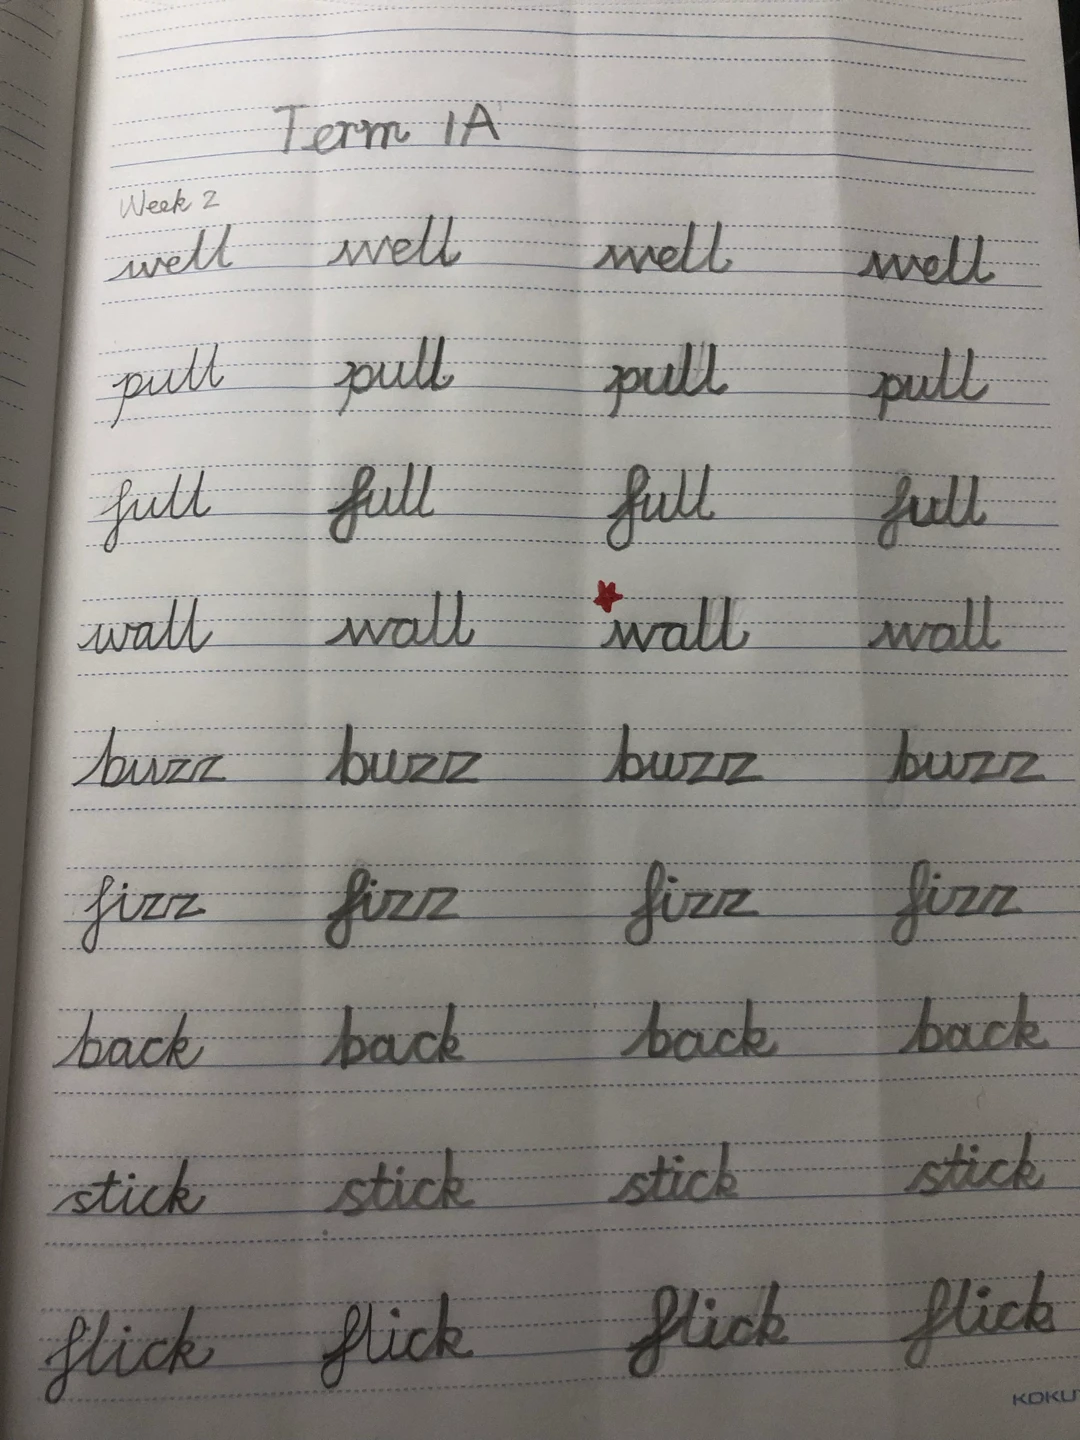 Term 1A
Week 2
well well well well
pull pull pull pull
full full full full
wall wall wall wall
buzz buzz buzz buzz
fizz fizz fizz fizz
back back back back
stick stick stick stick
flick flick flick flick